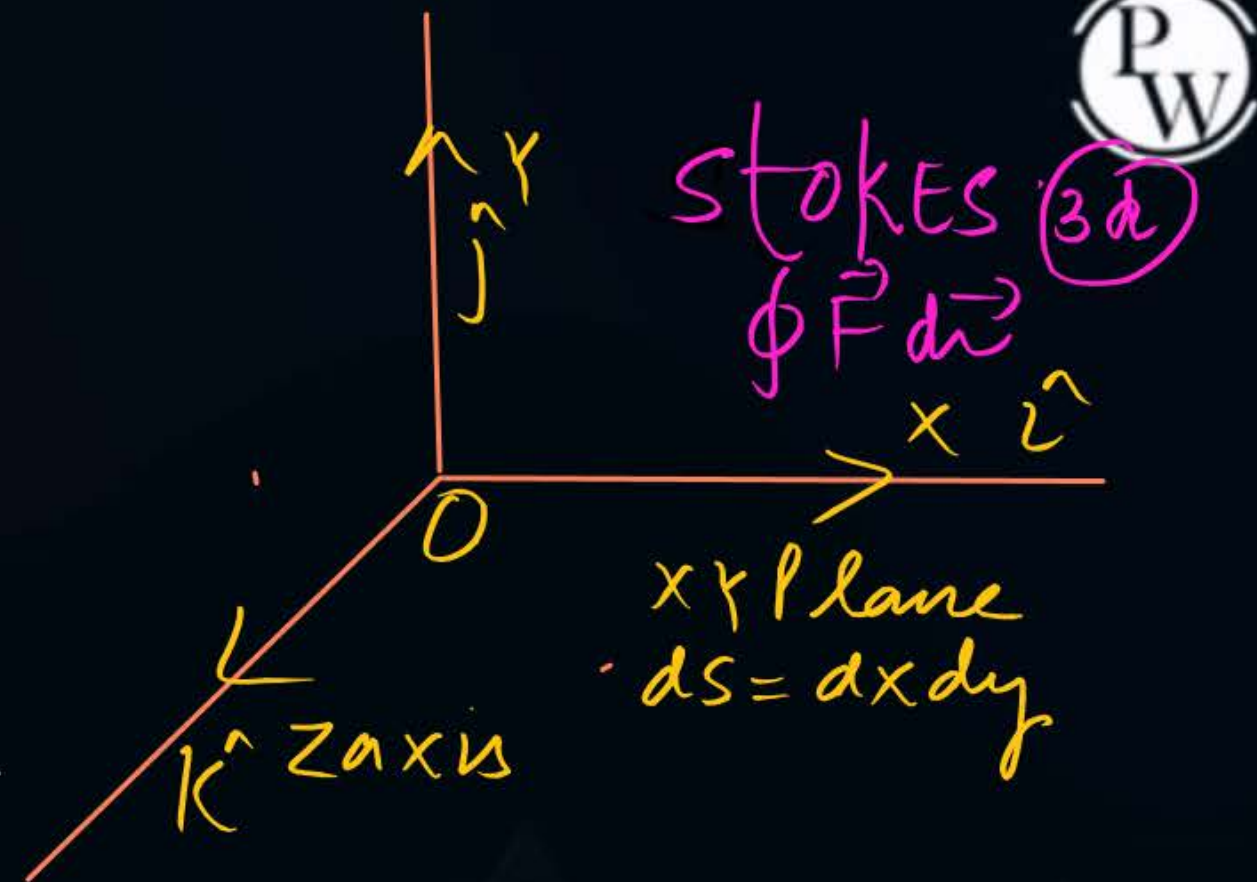 PW
Y
ĵ
STOKES 3d
∮ F⃗ dr⃗
X î
O
XY Plane
ds = dxdy
k̂ Z axis